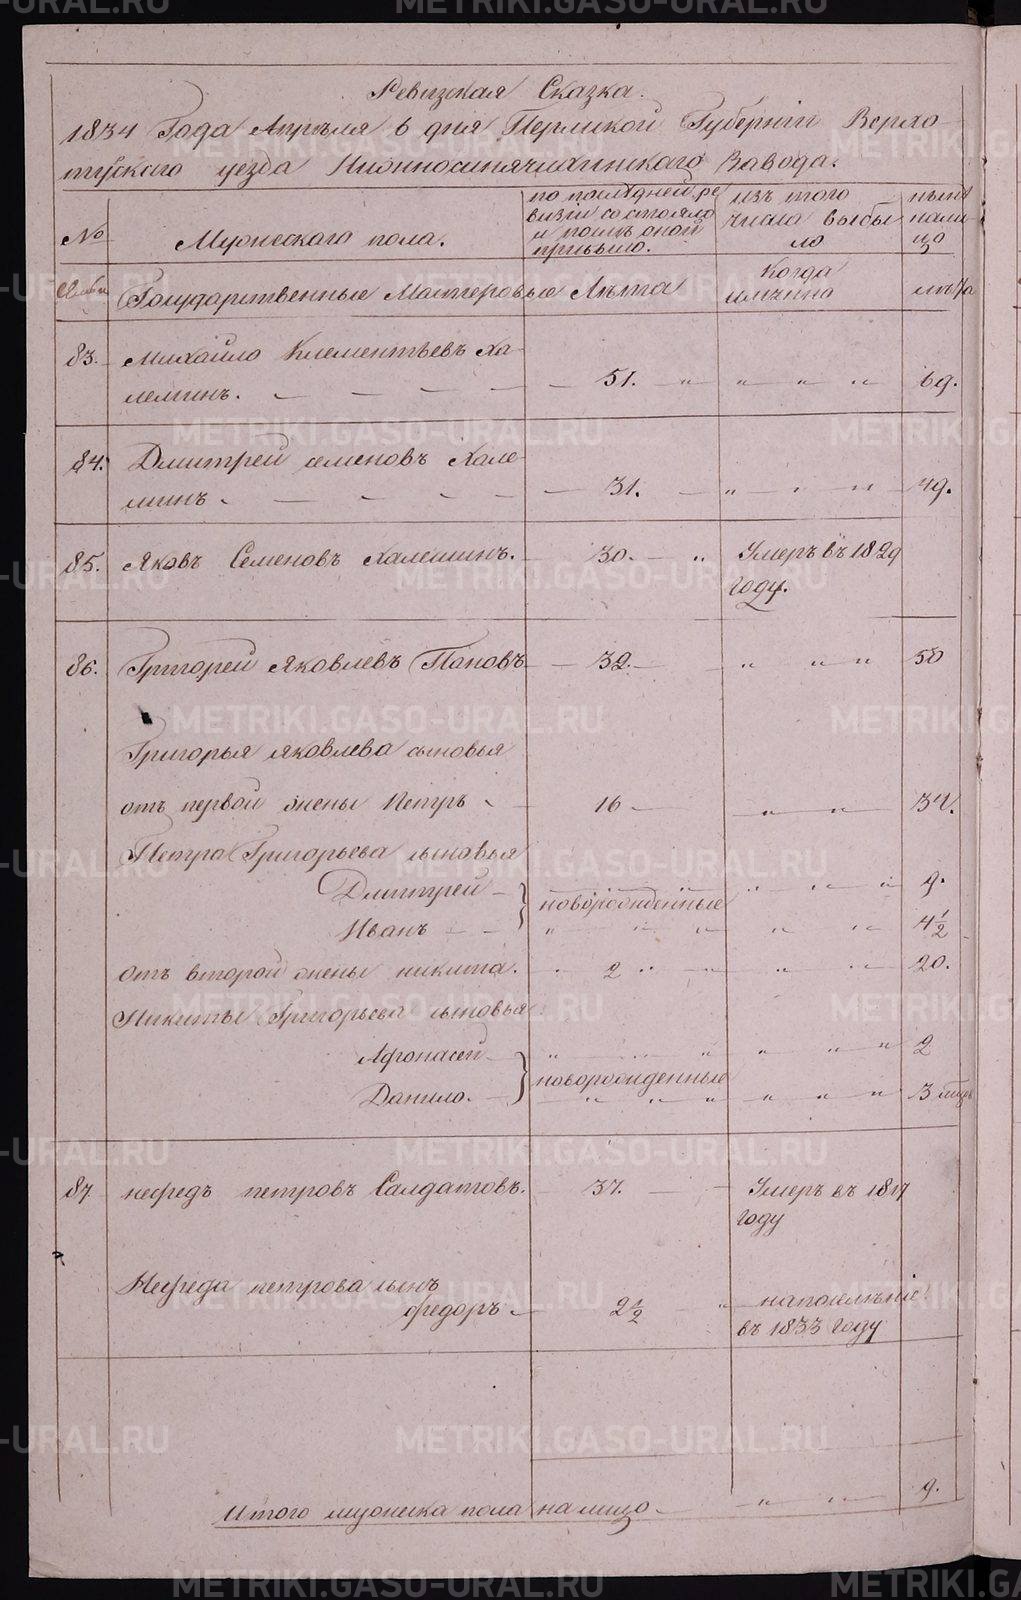 Ревизская Сказка.
1834 Года Апреля 6 дня Пермской Губернiи Верхо-
турского уезда Нижносинячихинскаго Завода.
№ Мужескаго пола. по последней ре-
визiи состояло
и после оной
прибыло. изъ того
числа выбы
ло ныне
нали-
цо
Семьи Государственные Мастеровые Лета Когда
имянно лета
83. Михайло Клементьевъ Ха-
леминъ. 51. 69.
84. Дмитрей семеновъ Хале-
минъ 31. 49.
85. Яковъ Семеновъ Халеминъ. 30. Умеръ въ 1829
году.
86. Григорей Яковлевъ Пановъ 32. 50
Григорья яковлева сыновья
отъ первой жены Петръ 16 34.
Петра Григорьева сыновья
Дмитрей 9.
новорожденные
Иванъ 4 1/2
отъ второй жены никита. 2 20.
Никиты Григорьева сыновья
Афонасей 2
новорожденные
Данило. 3 мцъ
87 нефедъ петровъ Салдатовъ. 37. Умеръ въ 1817
году
Нефеда петрова сынъ
федоръ 2 1/2 напоселенiе
въ 1833 году
Итого мужеска пола налицо 9.
METRIKI.GASO-URAL.RU